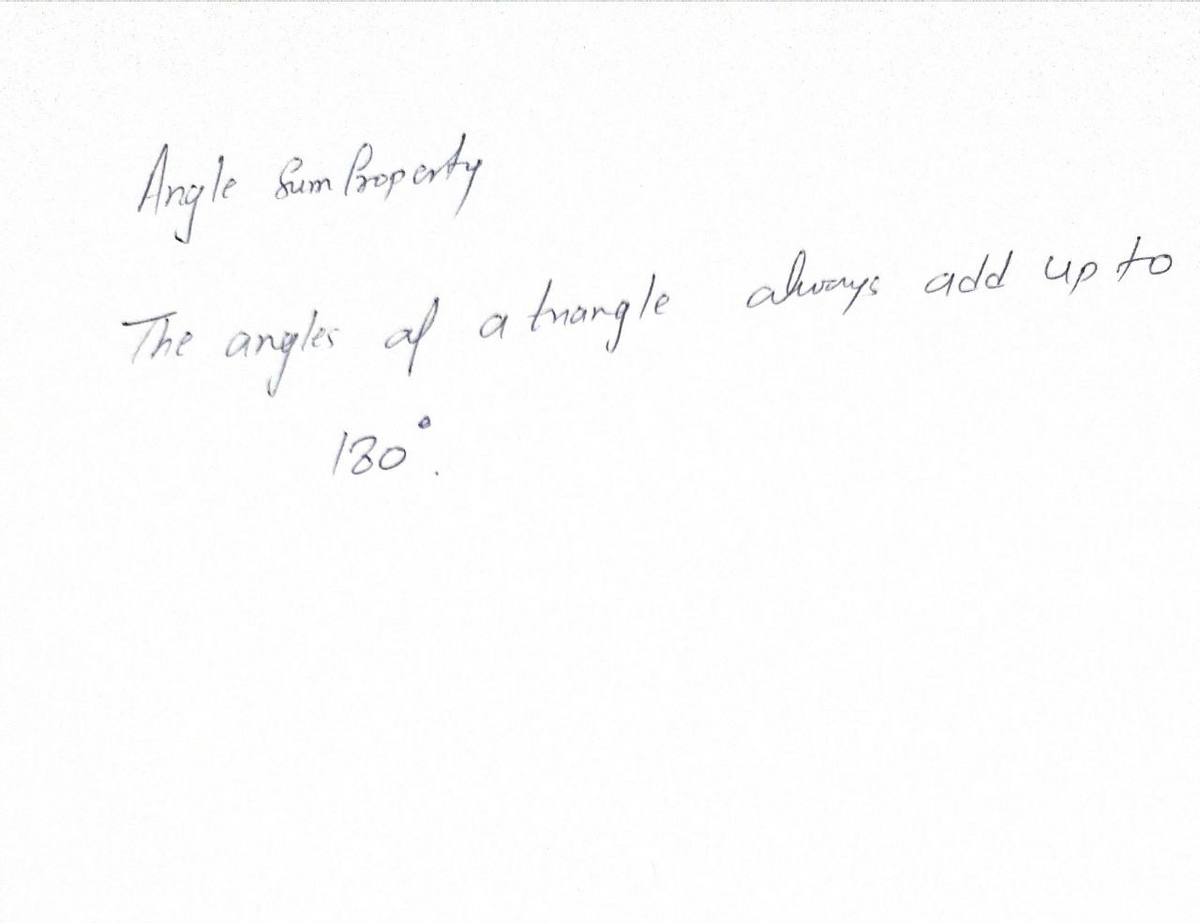 Angle Sum Property
The angles of a triangle always add up to
180°.